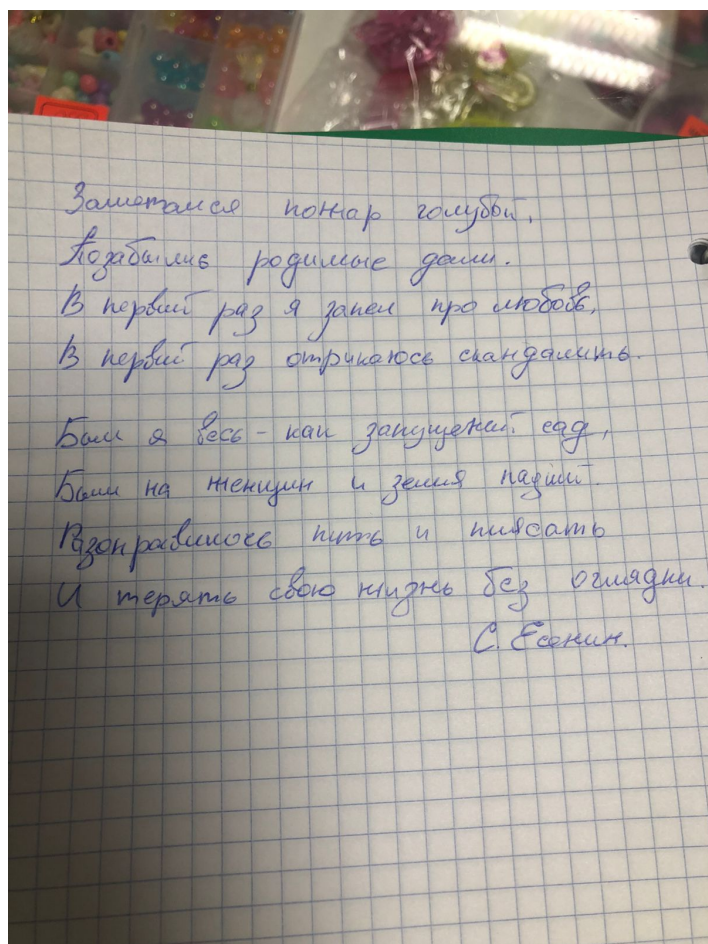 Заметался пожар голубой,
Позабылись родимые дали.
В первый раз я запел про любовь,
В первый раз отрикаюсь скандалить.
Был я весь - как запущений сад,
Был на женщин и зелия падший.
Разонравилось пить и плясать
И терять свою жизнь без оглядки.
С. Есенин.